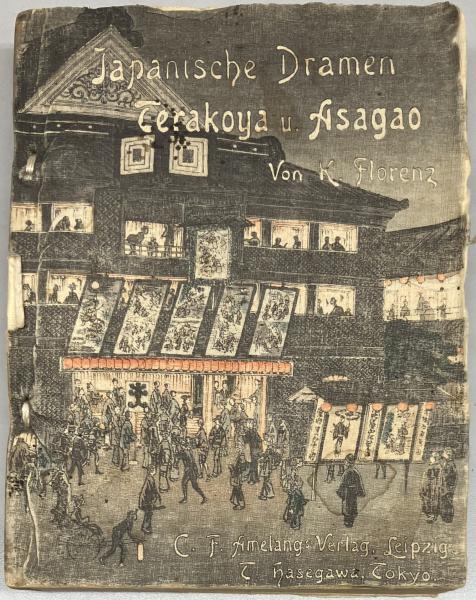 Japanische Dramen
Terakoya u. Asagao
Von K. Florenz
C. F. Amelangs Verlag, Leipzig
T. Hasegawa, Tokyo.